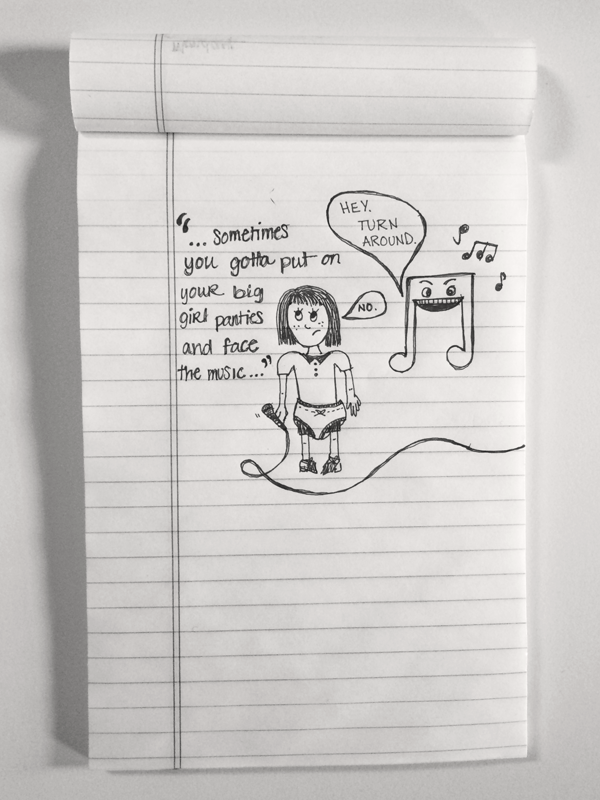 “... sometimes
you gotta put on
your big
girl panties
and face
the music...”
HEY.
TURN
AROUND.
NO.